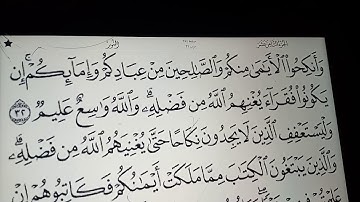 النور
وَأَنكِحُوا۟ ٱلْأَيَـٰمَىٰ مِنكُمْ وَٱلصَّـٰلِحِينَ مِنْ عِبَادِكُمْ وَإِمَآئِكُمْ ۚ إِن
يَكُونُوا۟ فُقَرَآءَ يُغْنِهِمُ ٱللَّهُ مِن فَضْلِهِۦ ۗ وَٱللَّهُ وَٰسِعٌ عَلِيمٌ ٣٢
وَلْيَسْتَعْفِفِ ٱلَّذِينَ لَا يَجِدُونَ نِكَاحًا حَتَّىٰ يُغْنِيَهُمُ ٱللَّهُ مِن فَضْلِهِۦ ۗ
وَٱلَّذِينَ يَبْتَغُونَ ٱلْكِتَـٰبَ مِمَّا مَلَكَتْ أَيْمَـٰنُكُمْ فَكَاتِبُوهُمْ إِنْ